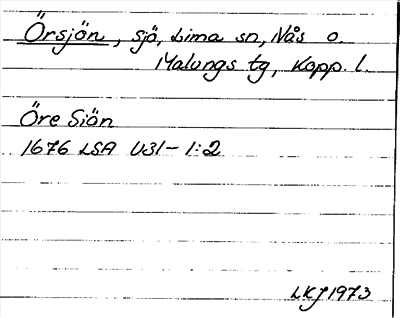 Örsjön, sjö, Lima sn, Nås o.
Malungs tg, Kopp. l.
Öre Siön
1676 LSA U31-1:2
LKJ 1973